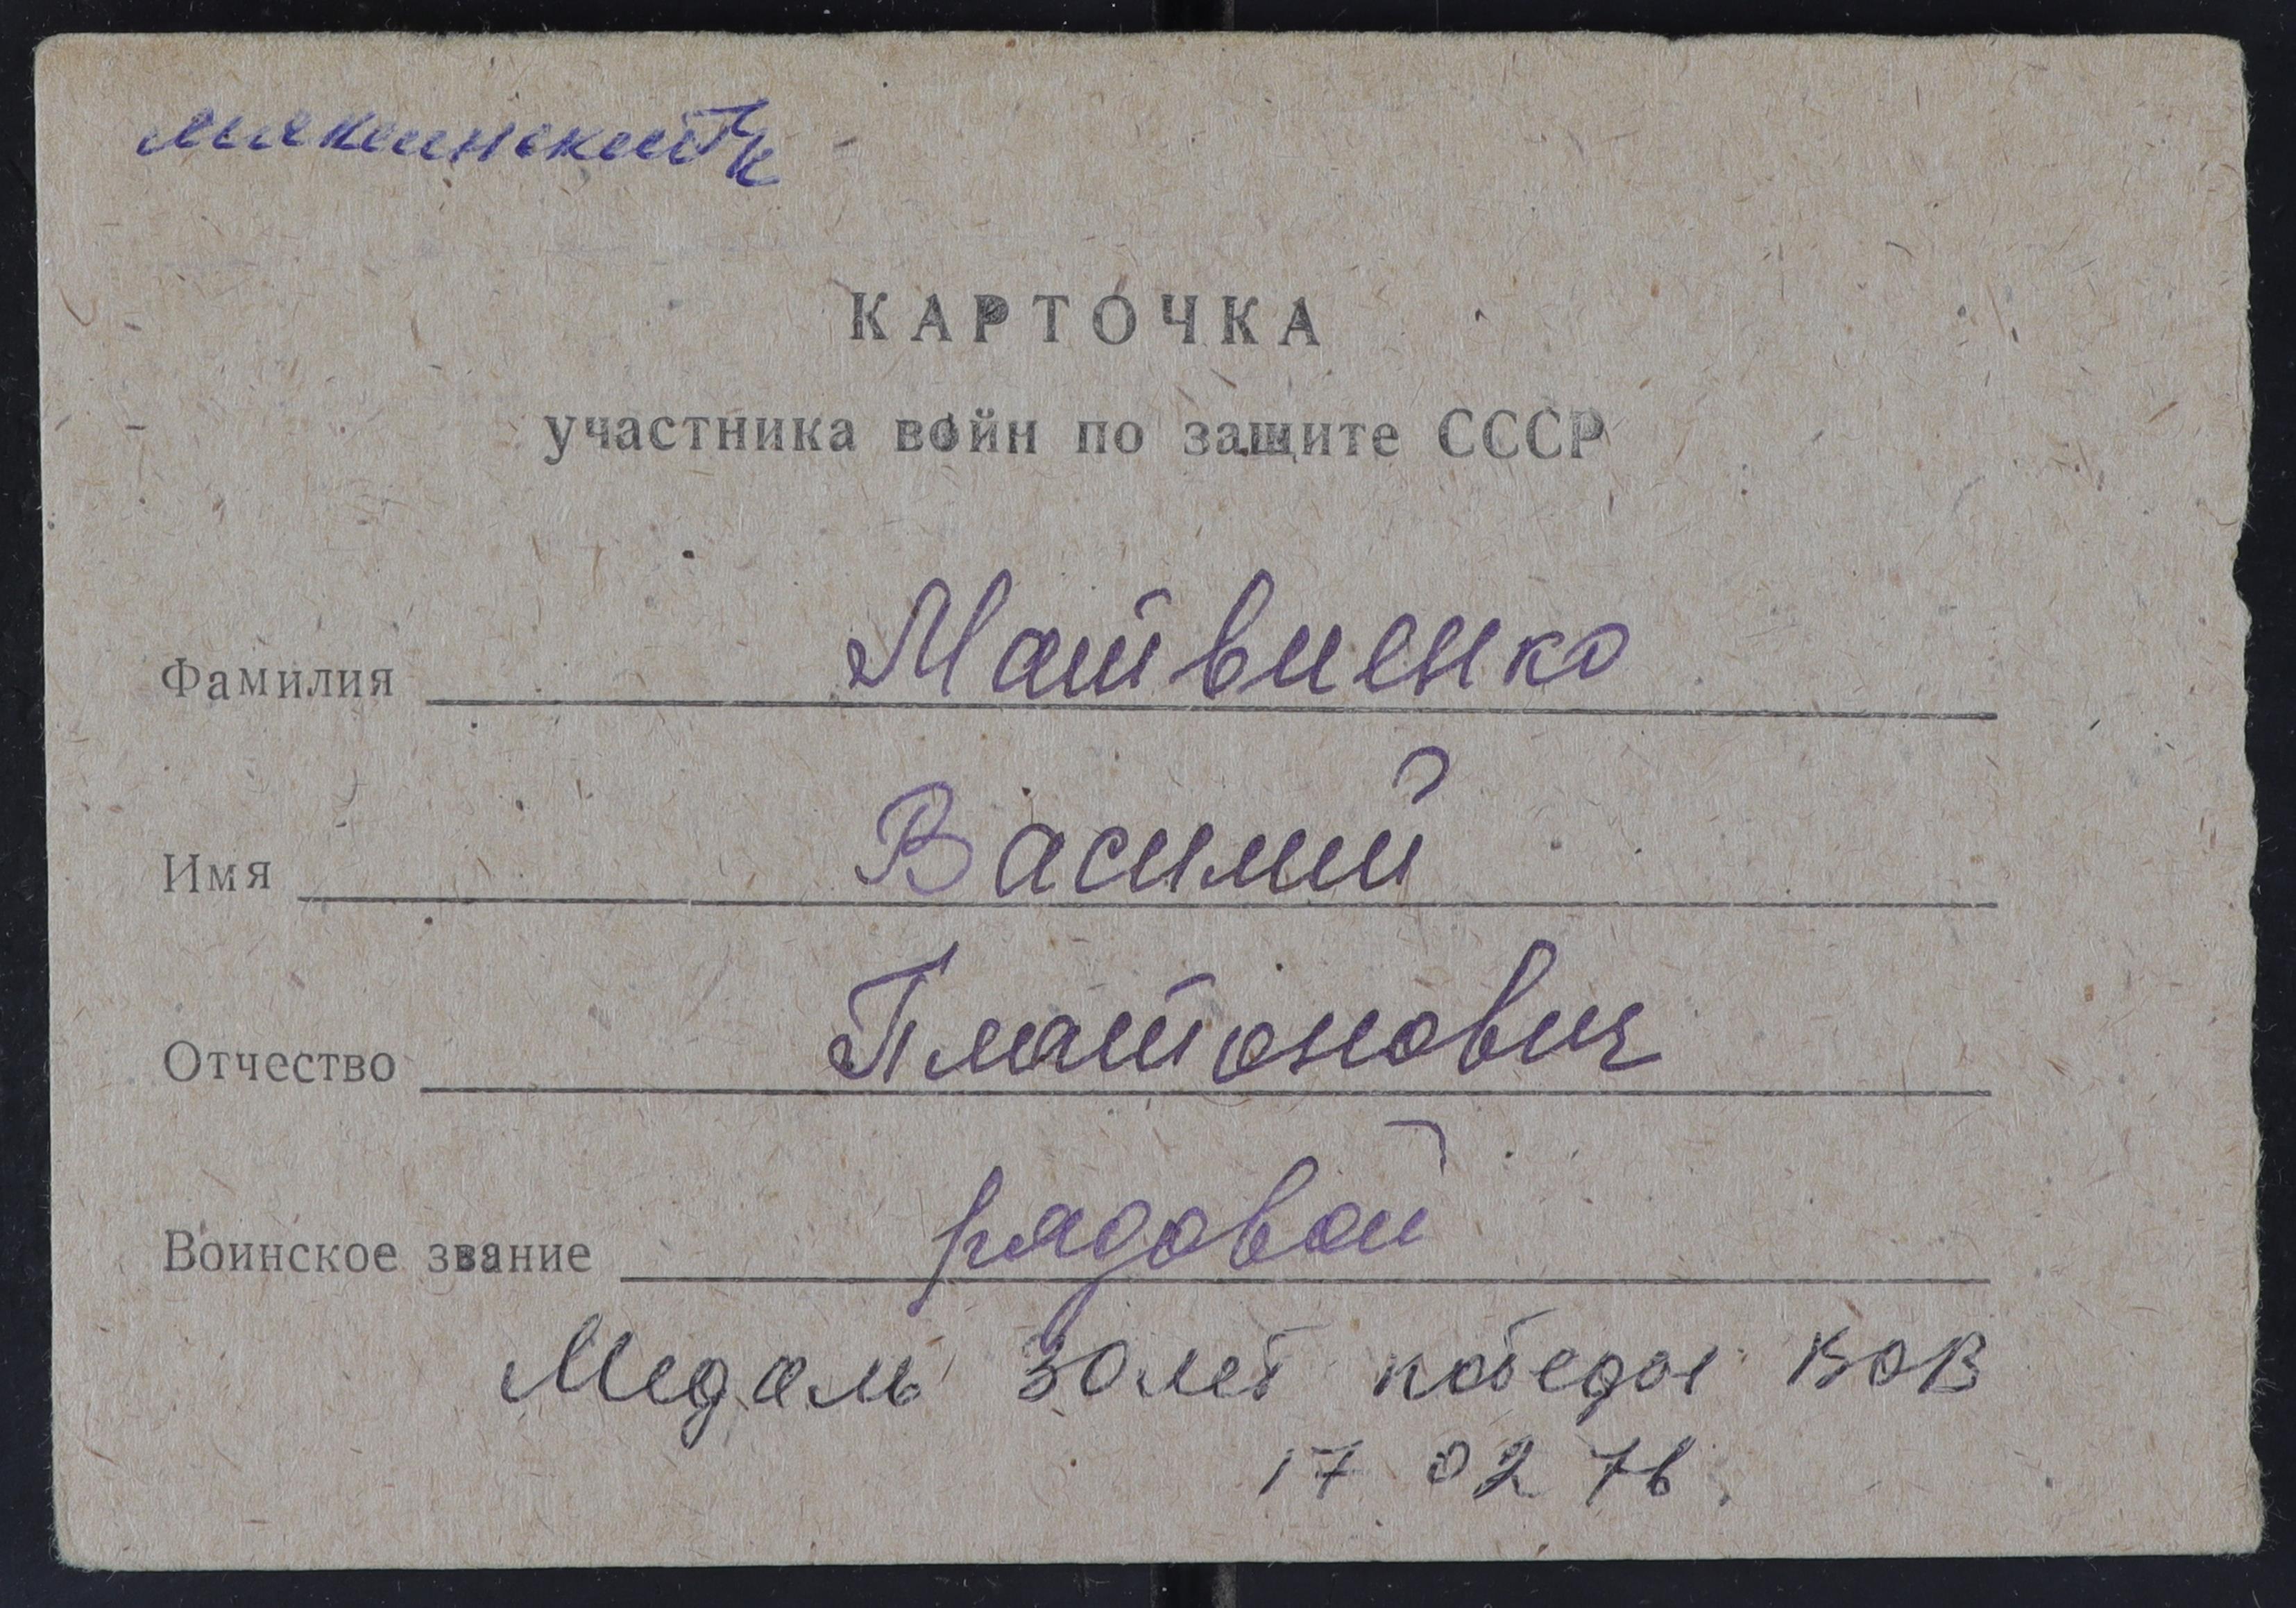 КАРТОЧКА
участника войн по защите СССР
Фамилия Матвиенко
Имя Василий
Отчество Платонович
Воинское звание рядовой
Медаль 30 лет победы ВОВ
17 02 76.